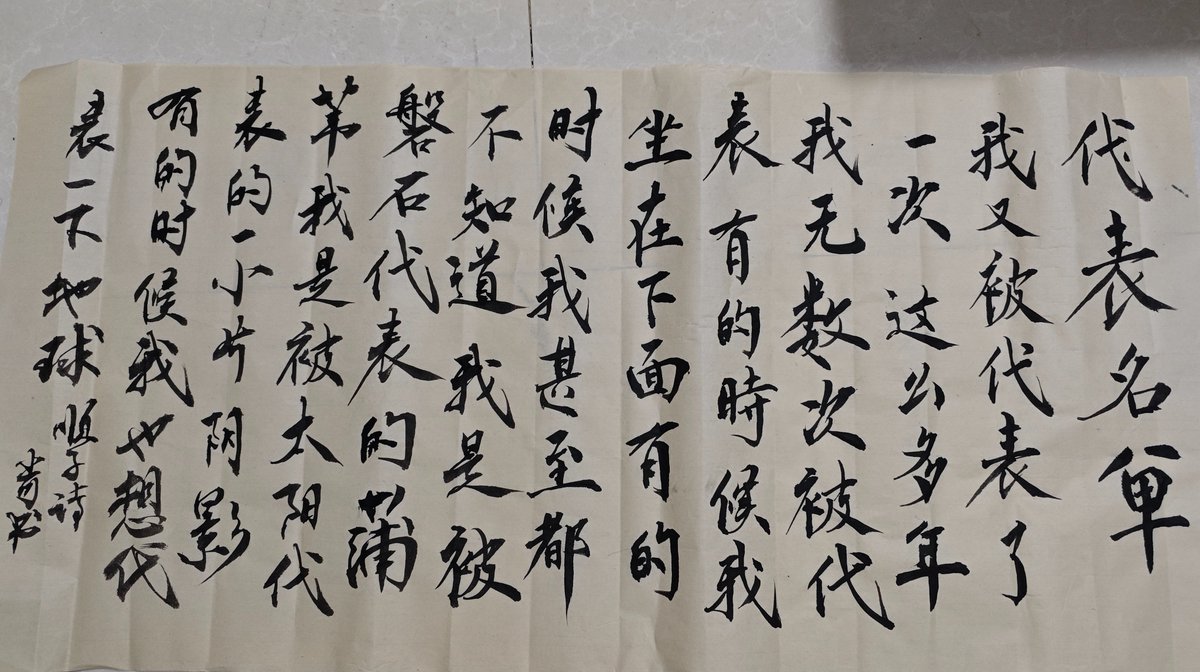 代表名单
我又被代表了
一次 这么多年
我无数次被代
表 有的時候我
坐在下面有的
时候我甚至都
不知道我是被
磐石代表的蒲
苇我是被太阳代
表的一小片阴影
有的时候我也想代
表一下地球 顺子诗
书